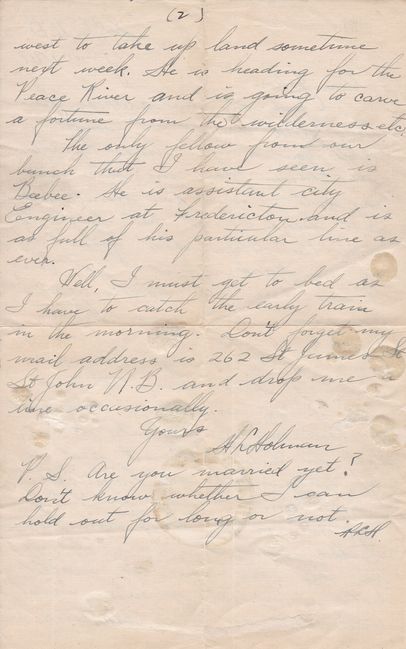 (2)
west to take up land sometime
next week. He is heading for the
Peace River and is going to carve
a fortune from the wilderness etc.
The only fellow from our
bunch that I have seen is
Beebee. He is assistant city
Engineer at Fredericton and is
as full of his particular line as
ever.
Well, I must get to bed as
I have to catch the early train
in the morning. Don't forget my
mail address is 262 St James St
St John N.B. and drop me a
line occasionally.
Yours
A L Holman
P. S. Are you married yet?
Don't know whether I can
hold out for long or not.
ALH.